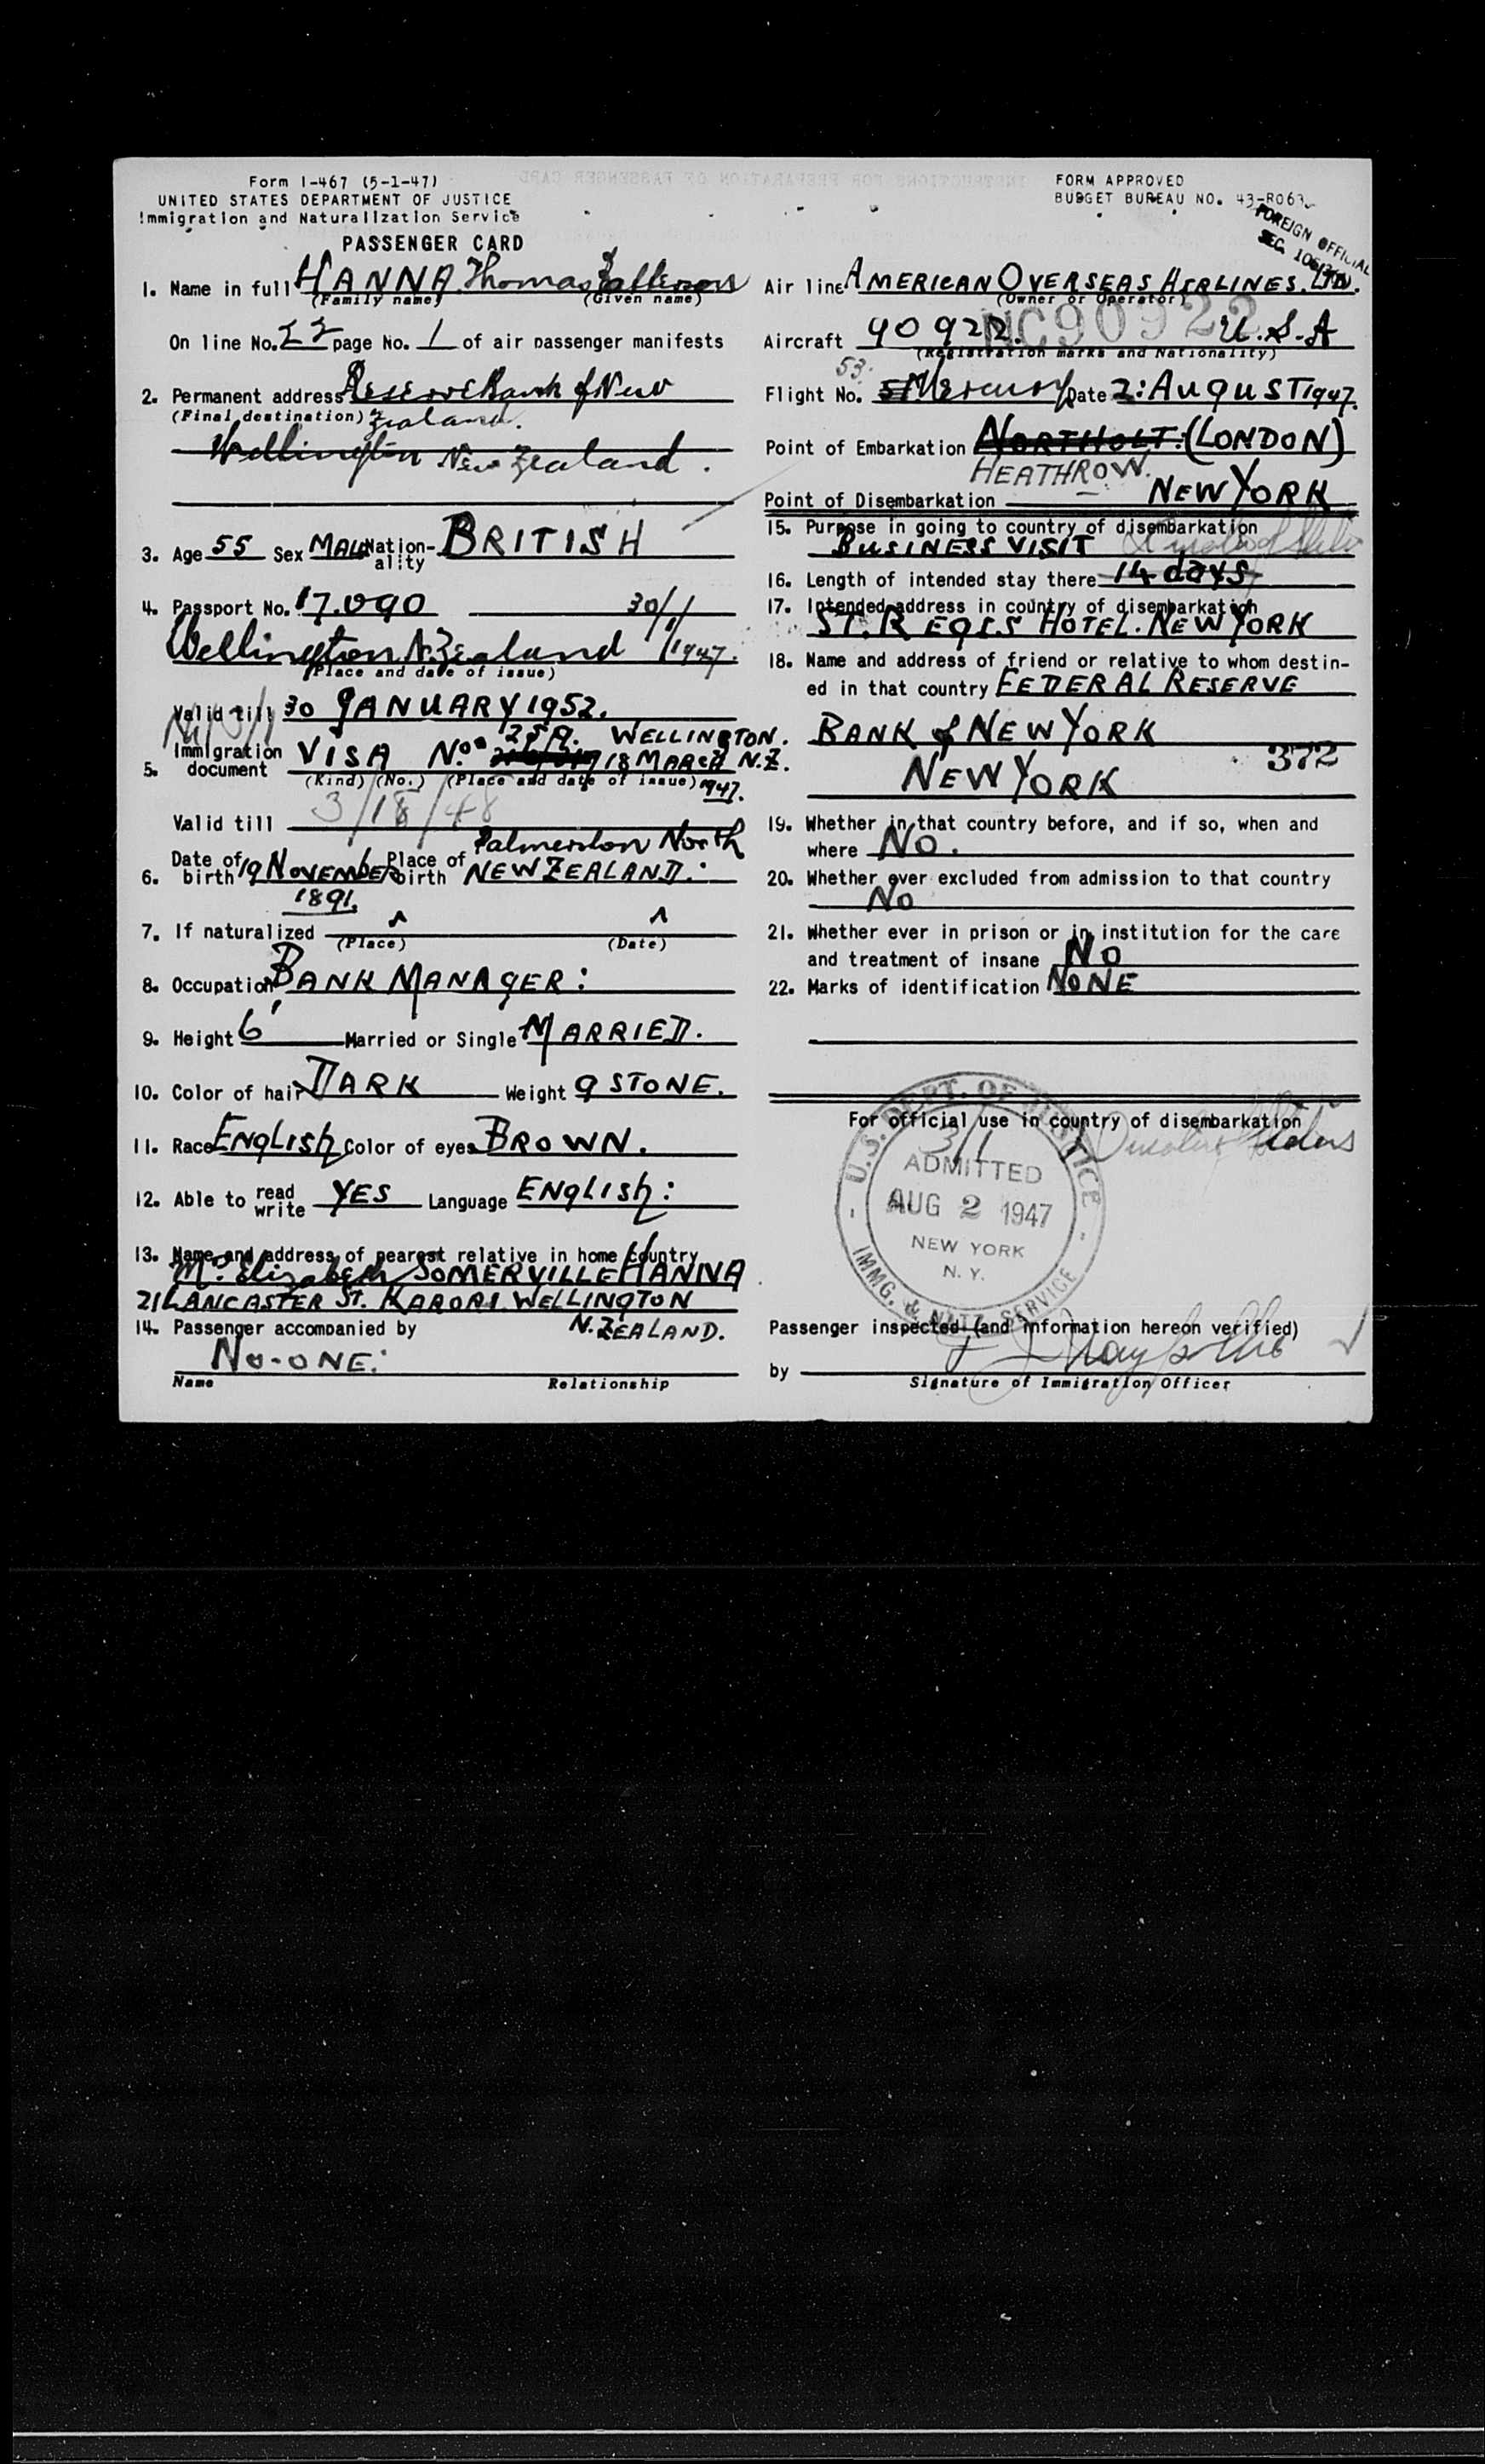 Form I-467 (5-1-47)
UNITED STATES DEPARTMENT OF JUSTICE
Immigration and Naturalization Service
PASSENGER CARD
1. Name in full HANNA Thomas
(Family name) (Given name)
On line No. 22 page No. 1 of air passenger manifests
2. Permanent address Reserve Bank of New
(Final destination) Zealand.
Wellington New Zealand.
3. Age 55 Sex MALE Nationality BRITISH
4. Passport No. 17.090 30/1/
Wellington N. Zealand 1947.
(Place and date of issue)
Valid till 30 JANUARY 1952.
259. WELLINGTON.
5. Immigration document VISA No. 18 MARCH N.Z.
(Kind) (No.) (Place and date of issue) 1947.
Valid till 3/18/48
Palmerston North
6. Date of birth 19 NOVEMBER Place of birth NEW ZEALAND:
1891.
7. If naturalized
(Place) (Date)
8. Occupation BANK MANAGER:
9. Height 6' Married or Single MARRIED.
10. Color of hair DARK Weight 9 STONE.
11. Race ENGLISH Color of eyes BROWN.
12. Able to read write YES Language ENGLISH:
13. Name and address of nearest relative in home country
Elizabeth SOMERVILLE HANNA
21 LANCASTER ST. KARORI. WELLINGTON
N. ZEALAND.
14. Passenger accompanied by
NO-ONE:
Name Relationship
FORM APPROVED
BUDGET BUREAU NO. 43-R063
FOREIGN OFFICIAL
SEC.
Air line AMERICAN OVERSEAS AIRLINES. LTD.
(Owner or Operator)
NC90922
Aircraft 90922. U.S.A
(Registration marks and Nationality)
53.
Flight No. Mercury Date 2: AUGUST 1947.
Point of Embarkation NORTHOLT: (LONDON)
HEATHROW.
Point of Disembarkation NEW YORK
15. Purpose in going to country of disembarkation
BUSINESS VISIT
16. Length of intended stay there 14 days
17. Intended address in country of disembarkation
ST. REGIS HOTEL. NEW YORK
18. Name and address of friend or relative to whom destin-
ed in that country FEDERAL RESERVE
BANK of NEW YORK
372
NEW YORK
19. Whether in that country before, and if so, when and
where NO.
20. Whether ever excluded from admission to that country
NO
21. Whether ever in prison or in institution for the care
and treatment of insane NO
22. Marks of identification NONE
For official use in country of disembarkation
3/1
U.S. DEPT. OF JUSTICE
ADMITTED
AUG 2 1947
NEW YORK
N. Y.
IMMG. & NATZ. SERVICE
Passenger inspected (and information hereon verified)
by
Signature of Immigration Officer